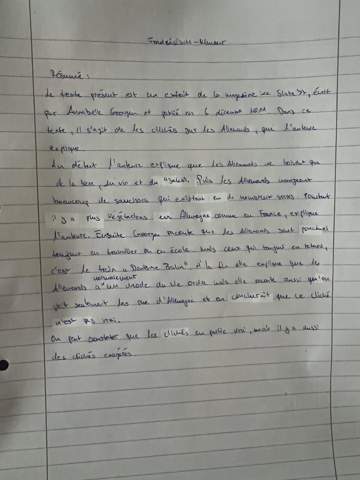 Résumé :
Le texte présent est un extrait de la magazine « Slate », Écrit
par Annabelle Georgen et publié en 6 décembre Dans ce
texte, il s'agit de les clichés sur les Allemands, que l'auteure
explique.
Au début l'auteure explique que les Allemands ne boivent que
de la bière, du vin et du Puis les Allemands mangent
beaucoup de saucisses qui existent en de sortes. Pourtant
il y a plus végétariens en Allemagne comme en France, explique
l'auteure. Ensuite Georgen raconte que les Allemands sont ponctuels
toujours au travail ou en école mais ceux qui toujours en retard,
c'est le train « Deutsche Bahn ». À la fin elle explique que les
Allemands a un mode de vie ordre mais elle raconte aussi qu'on
voit seulement les rue d'Allemagne et on conclurait que ce cliché
n'est pas vrai.
On peut constater que les clichés en partie vrai, mais il y a aussi
des clichés exagérés.